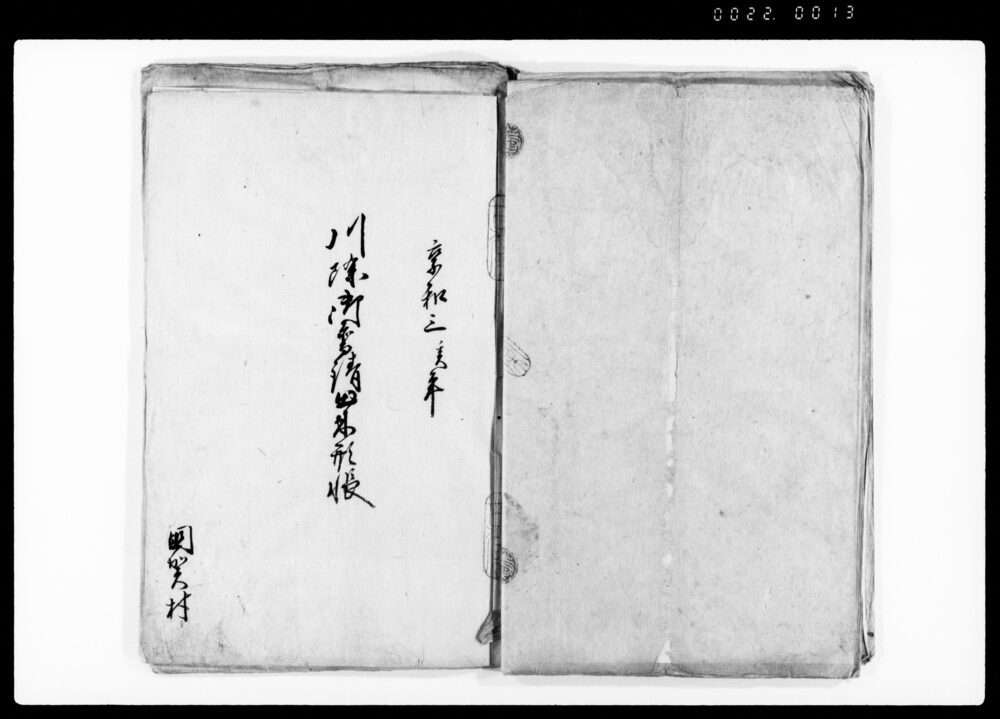 0022. 0013
享和三亥年
川除御普請出来形帳
関契村